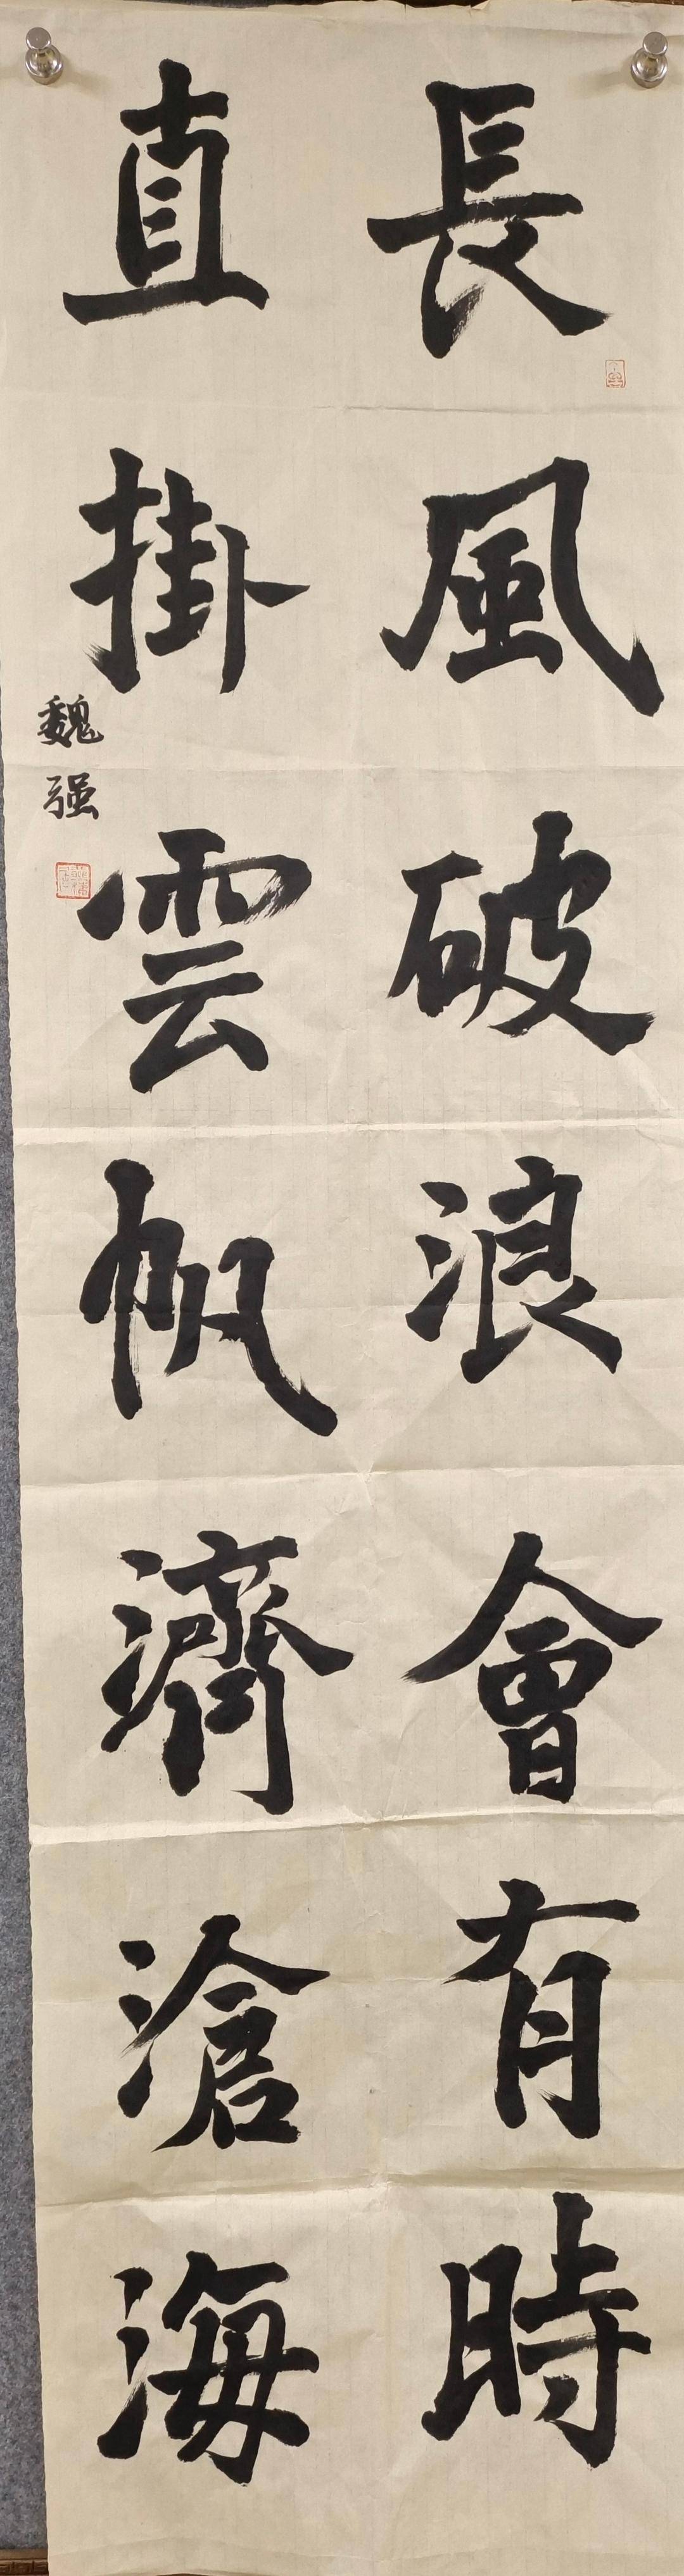 長風破浪會有時
直掛雲帆濟滄海
魏强